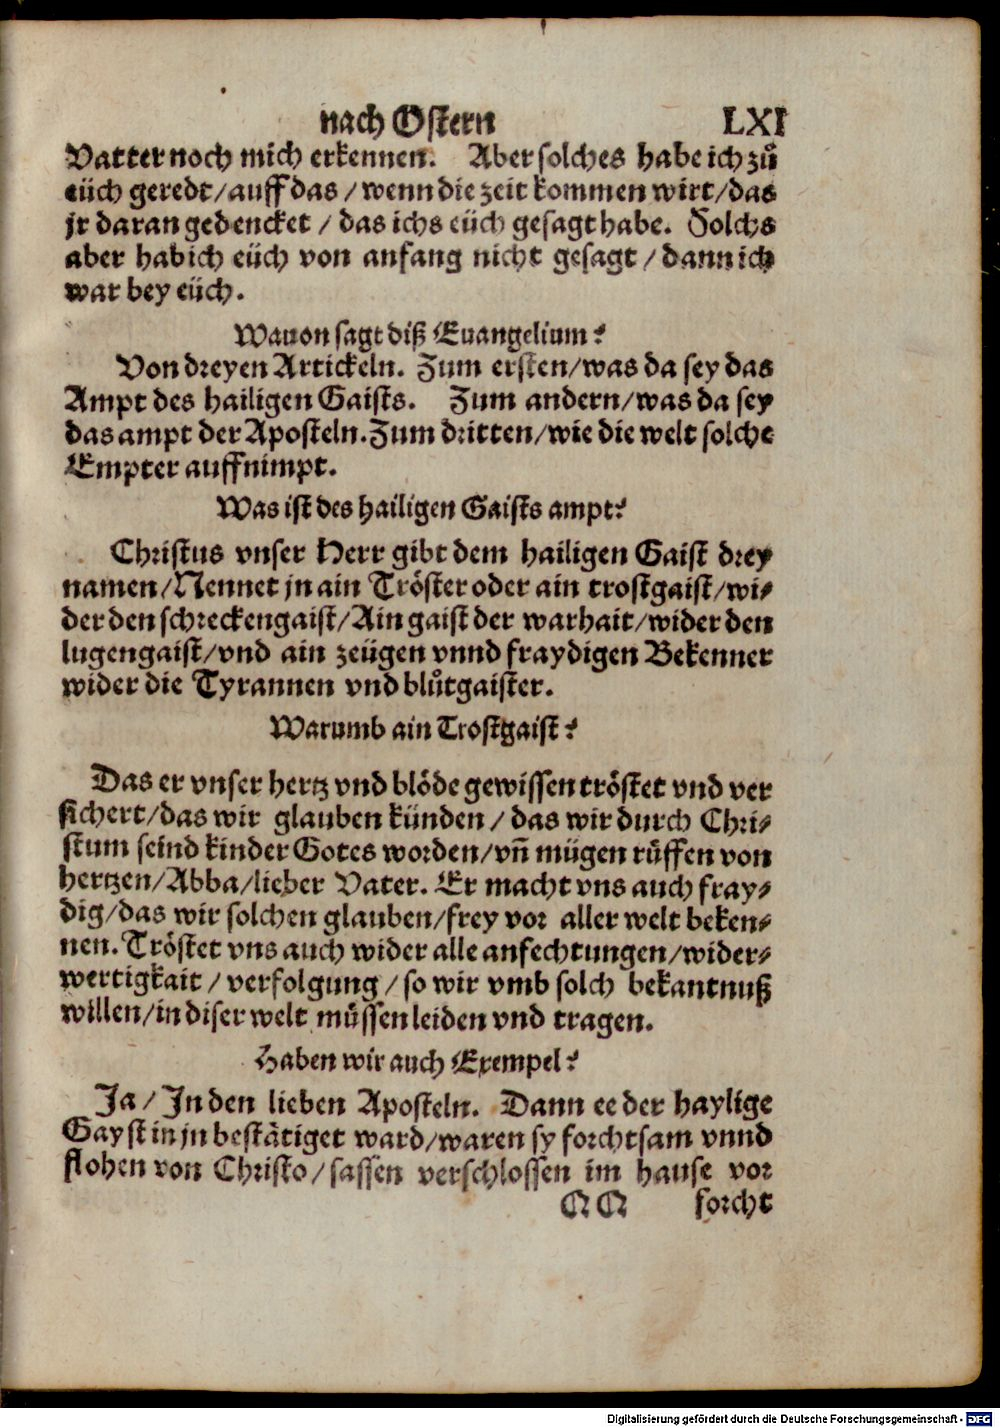 nach Ostern LXI
Vatter noch mich erkennen. Aber solches habe ich zů
eüch geredt/auff das/wenn die zeit kommen wirt/das
jr daran gedencket/das ichs eüch gesagt habe. Solchs
aber hab ich eüch von anfang nicht gesagt/dann ich
war bey eüch.
Wauon sagt diß Euangelium?
Von dreyen Artickeln. Zum ersten/was da sey das
Ampt des hailigen Gaists. Zum andern/was da sey
das ampt der Aposteln. Zum dritten/wie die welt solche
Empter auffnimpt.
Was ist des hailigen Gaists ampt?
Christus vnser Herr gibt dem hailigen Gaist drey
namen/Nennet jn ain Tröster oder ain trostgaist/wi⸗
der den schreckengaist/Ain gaist der warhait/wider den
lugengaist/vnd ain zeügen vnnd fraydigen Bekenner
wider die Tyrannen vnd blůtgaister.
Warumb ain Trostgaist?
Das er vnser hertz vnd blöde gewissen tröstet vnd ver
sichert/das wir glauben künden/das wir durch Chri⸗
stum seind kinder Gotes worden/vñ mügen rüffen von
hertzen/Abba/lieber Vater. Er macht vns auch fray⸗
dig/das wir solchen glauben/frey vor aller welt beken⸗
nen. Tröstet vns auch wider alle anfechtungen/wider⸗
wertigkait/verfolgung/so wir vmb solch bekantnuß
willen/in diser welt müssen leiden vnd tragen.
Haben wir auch Exempel?
Ja/In den lieben Aposteln. Dann ee der haylige
Gayst in jn bestätiget ward/waren sy forchtsam vnnd
flohen von Christo/sassen verschlossen im hause vor
QQ forcht
Digitalisierung gefördert durch die Deutsche Forschungsgemeinschaft - DFG